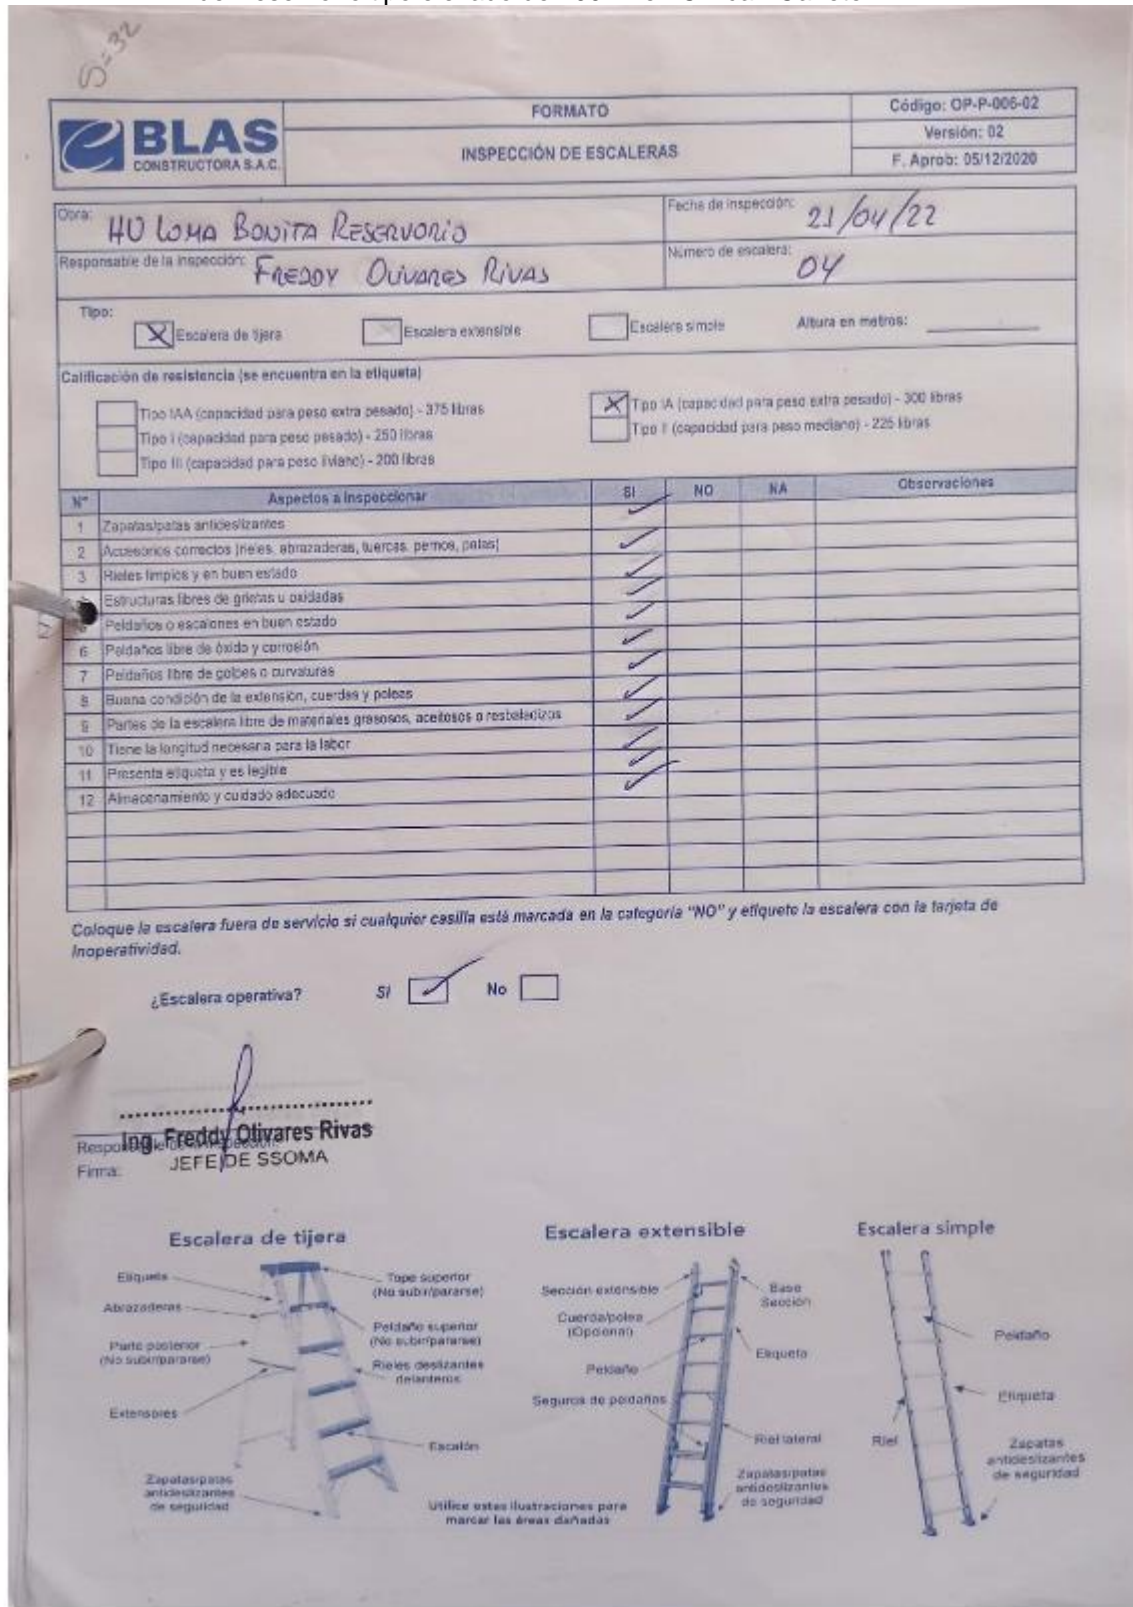 S=32
BLAS
CONSTRUCTORA S.A.C.
FORMATO
INSPECCIÓN DE ESCALERAS
Código: OP-P-006-02
Versión: 02
F. Aprob: 05/12/2020
Obra: HU LOMA BONITA RESERVORIO
Fecha de inspección: 21/04/22
Responsable de la inspección: FREDDY OLIVARES RIVAS
Número de escalera: 04
Tipo:
Escalera de tijera
Escalera extensible
Escalera simple
Altura en metros:
Calificación de resistencia (se encuentra en la etiqueta)
Tipo IAA (capacidad para peso extra pesado) - 375 libras
Tipo IA (capacidad para peso extra pesado) - 300 libras
Tipo I (capacidad para peso pesado) - 250 libras
Tipo II (capacidad para peso mediano) - 225 libras
Tipo III (capacidad para peso liviano) - 200 libras
N° Aspectos a inspeccionar SI NO NA Observaciones
1 Zapatas/patas antideslizantes
2 Accesorios correctos (rieles, abrazaderas, tuercas, pernos, patas)
3 Rieles limpios y en buen estado
Estructuras libres de grietas u oxidadas
Peldaños o escalones en buen estado
6 Peldaños libre de óxido y corrosión
7 Peldaños libre de golpes o curvaturas
8 Buena condición de la extensión, cuerdas y poleas
9 Partes de la escalera libre de materiales grasosos, aceitosos o resbaladizos
10 Tiene la longitud necesaria para la labor
11 Presenta etiqueta y es legible
12 Almacenamiento y cuidado adecuado
Coloque la escalera fuera de servicio si cualquier casilla está marcada en la categoría "NO" y etiquete la escalera con la tarjeta de
Inoperatividad.
¿Escalera operativa? SI No
Ing. Freddy Olivares Rivas
JEFE DE SSOMA
Firma:
Escalera de tijera
Etiqueta
Abrazaderas
Parte posterior
(No subir/pararse)
Extensores
Zapatas/patas
antideslizantes
de seguridad
Tope superior
(No subir/pararse)
Peldaño superior
(No subir/pararse)
Rieles deslizantes
delanteros
Escalón
Escalera extensible
Sección extensible
Cuerda/polea
(Opcional)
Peldaño
Seguros de peldaños
Base
Sección
Etiqueta
Riel lateral
Zapatas/patas
antideslizantes
de seguridad
Utilice estas ilustraciones para
marcar las áreas dañadas
Escalera simple
Peldaño
Etiqueta
Riel
Zapatas
antideslizantes
de seguridad